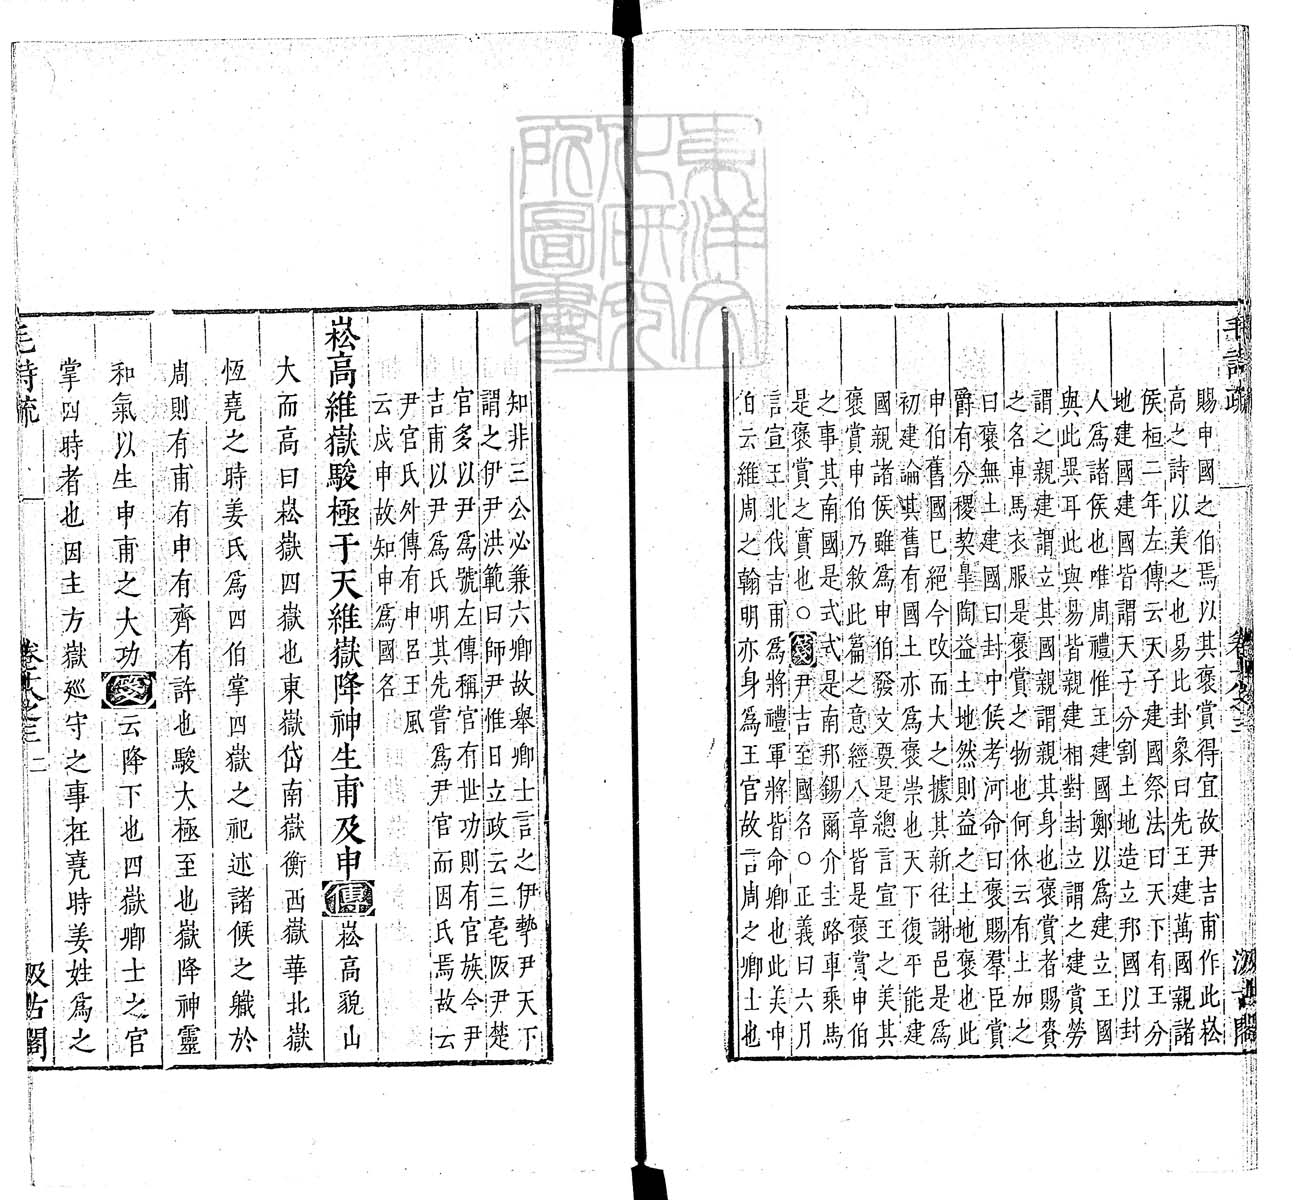 毛詩疏 卷十八之三 汲古閣
賜申國之伯焉以其褒賞得宜故尹吉甫作此崧
高之詩以美之也易比卦象曰先王建萬國親諸
侯桓二年左傳云天子建國祭法曰天下有王分
地建國建國皆謂天子分割土地造立邦國以封
人爲諸侯也唯周禮惟王建國鄭以爲建立王國
與此異耳此與易皆親建相對封立謂之建賞勞
謂之親建謂立其國親謂親其身也褒賞者賜賚
之名車馬衣服是褒賞之物也何休云有土加之
曰褒無土建國曰封中候考河命曰褒賜羣臣賞
爵有分稷契皐陶益土地然則益之土地褒也此
申伯舊國已絕今改而大之據其新往謝邑是爲
初建論其舊有國土亦爲褒崇也天下復平能建
國親諸侯雖爲申伯發文要是總言宣王之美其
褒賞申伯乃敘此篇之意經八章皆是褒賞申伯
之事其南國是式式是南邦錫爾介圭路車乘馬
是褒賞之實也○箋尹吉至國名○正義曰六月
言宣王北伐吉甫爲將禮軍將皆命卿也此美申
伯云維周之翰明亦身爲王官故言周之卿士也
知非三公必兼六卿故舉卿士言之伊摯尹天下
謂之伊尹洪範曰師尹惟日立政云三亳阪尹楚
官多以尹爲號左傳稱官有世功則有官族今尹
吉甫以尹爲氏明其先嘗爲尹官而因氏焉故云
尹官氏外傳有申呂王風
云戍申故知申爲國名
崧高維嶽駿極于天維嶽降神生甫及申傳崧高貌山
大而高曰崧嶽四嶽也東嶽岱南嶽衡西嶽華北嶽
恆堯之時姜氏爲四伯掌四嶽之祀述諸侯之職於
周則有甫有申有齊有許也駿大極至也嶽降神靈
和氣以生申甫之大功箋云降下也四嶽卿士之官
掌四時者也因主方嶽巡守之事在堯時姜姓爲之
毛詩疏 卷十八之三 二 汲古閣
東洋文化研究所圖書